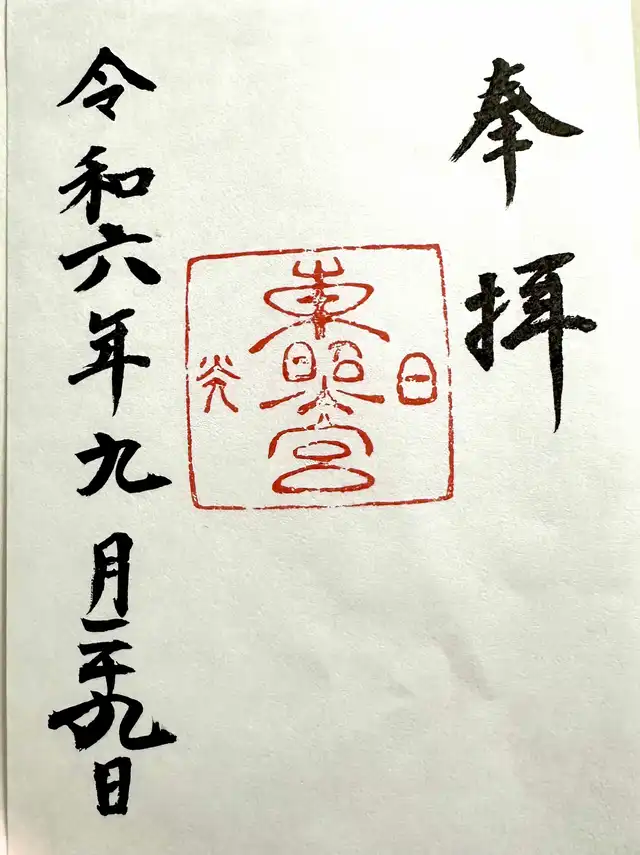 奉拝
日
東照宮
光
令和六年九月二十九日